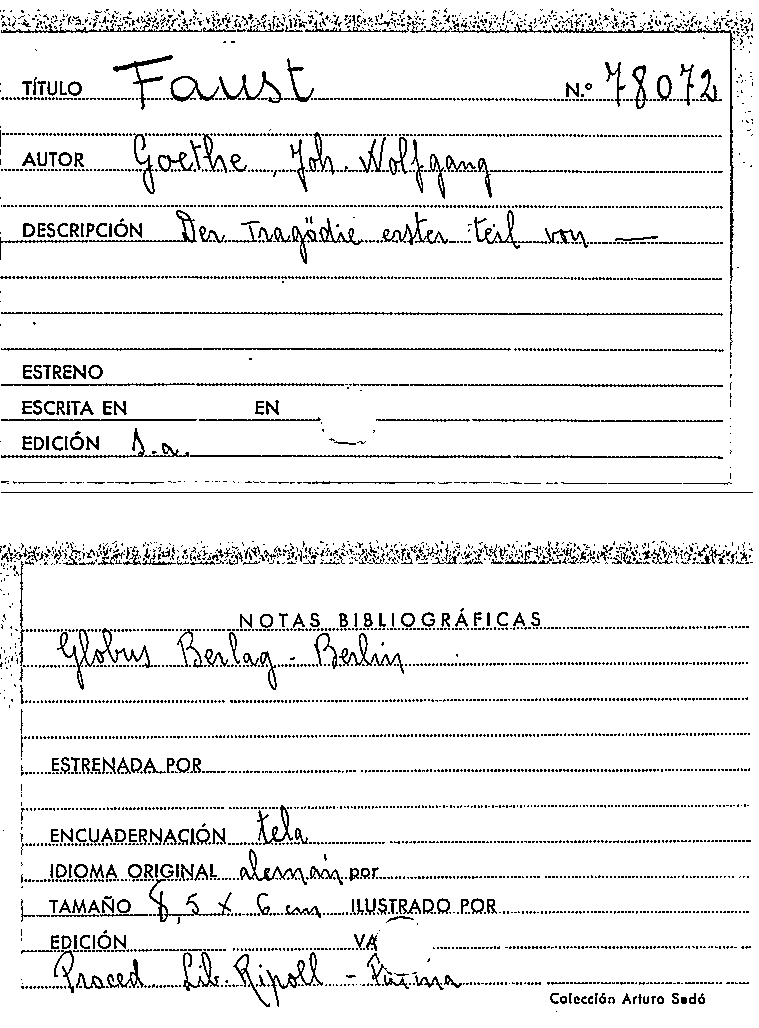 TÍTULO Faust N.º 78072
AUTOR Goethe, Joh. Wolfgang
DESCRIPCIÓN Der Tragödie erster teil von —
ESTRENO
ESCRITA EN EN
EDICIÓN s.a.
NOTAS BIBLIOGRÁFICAS
Globus Berlag - Berlin
ESTRENADA POR
ENCUADERNACIÓN tela
IDIOMA ORIGINAL alemán por
TAMAÑO 8,5 x 6 cm ILUSTRADO POR
EDICIÓN VA
Proced. Lib. Ripoll -
Colección Arturo Sedó